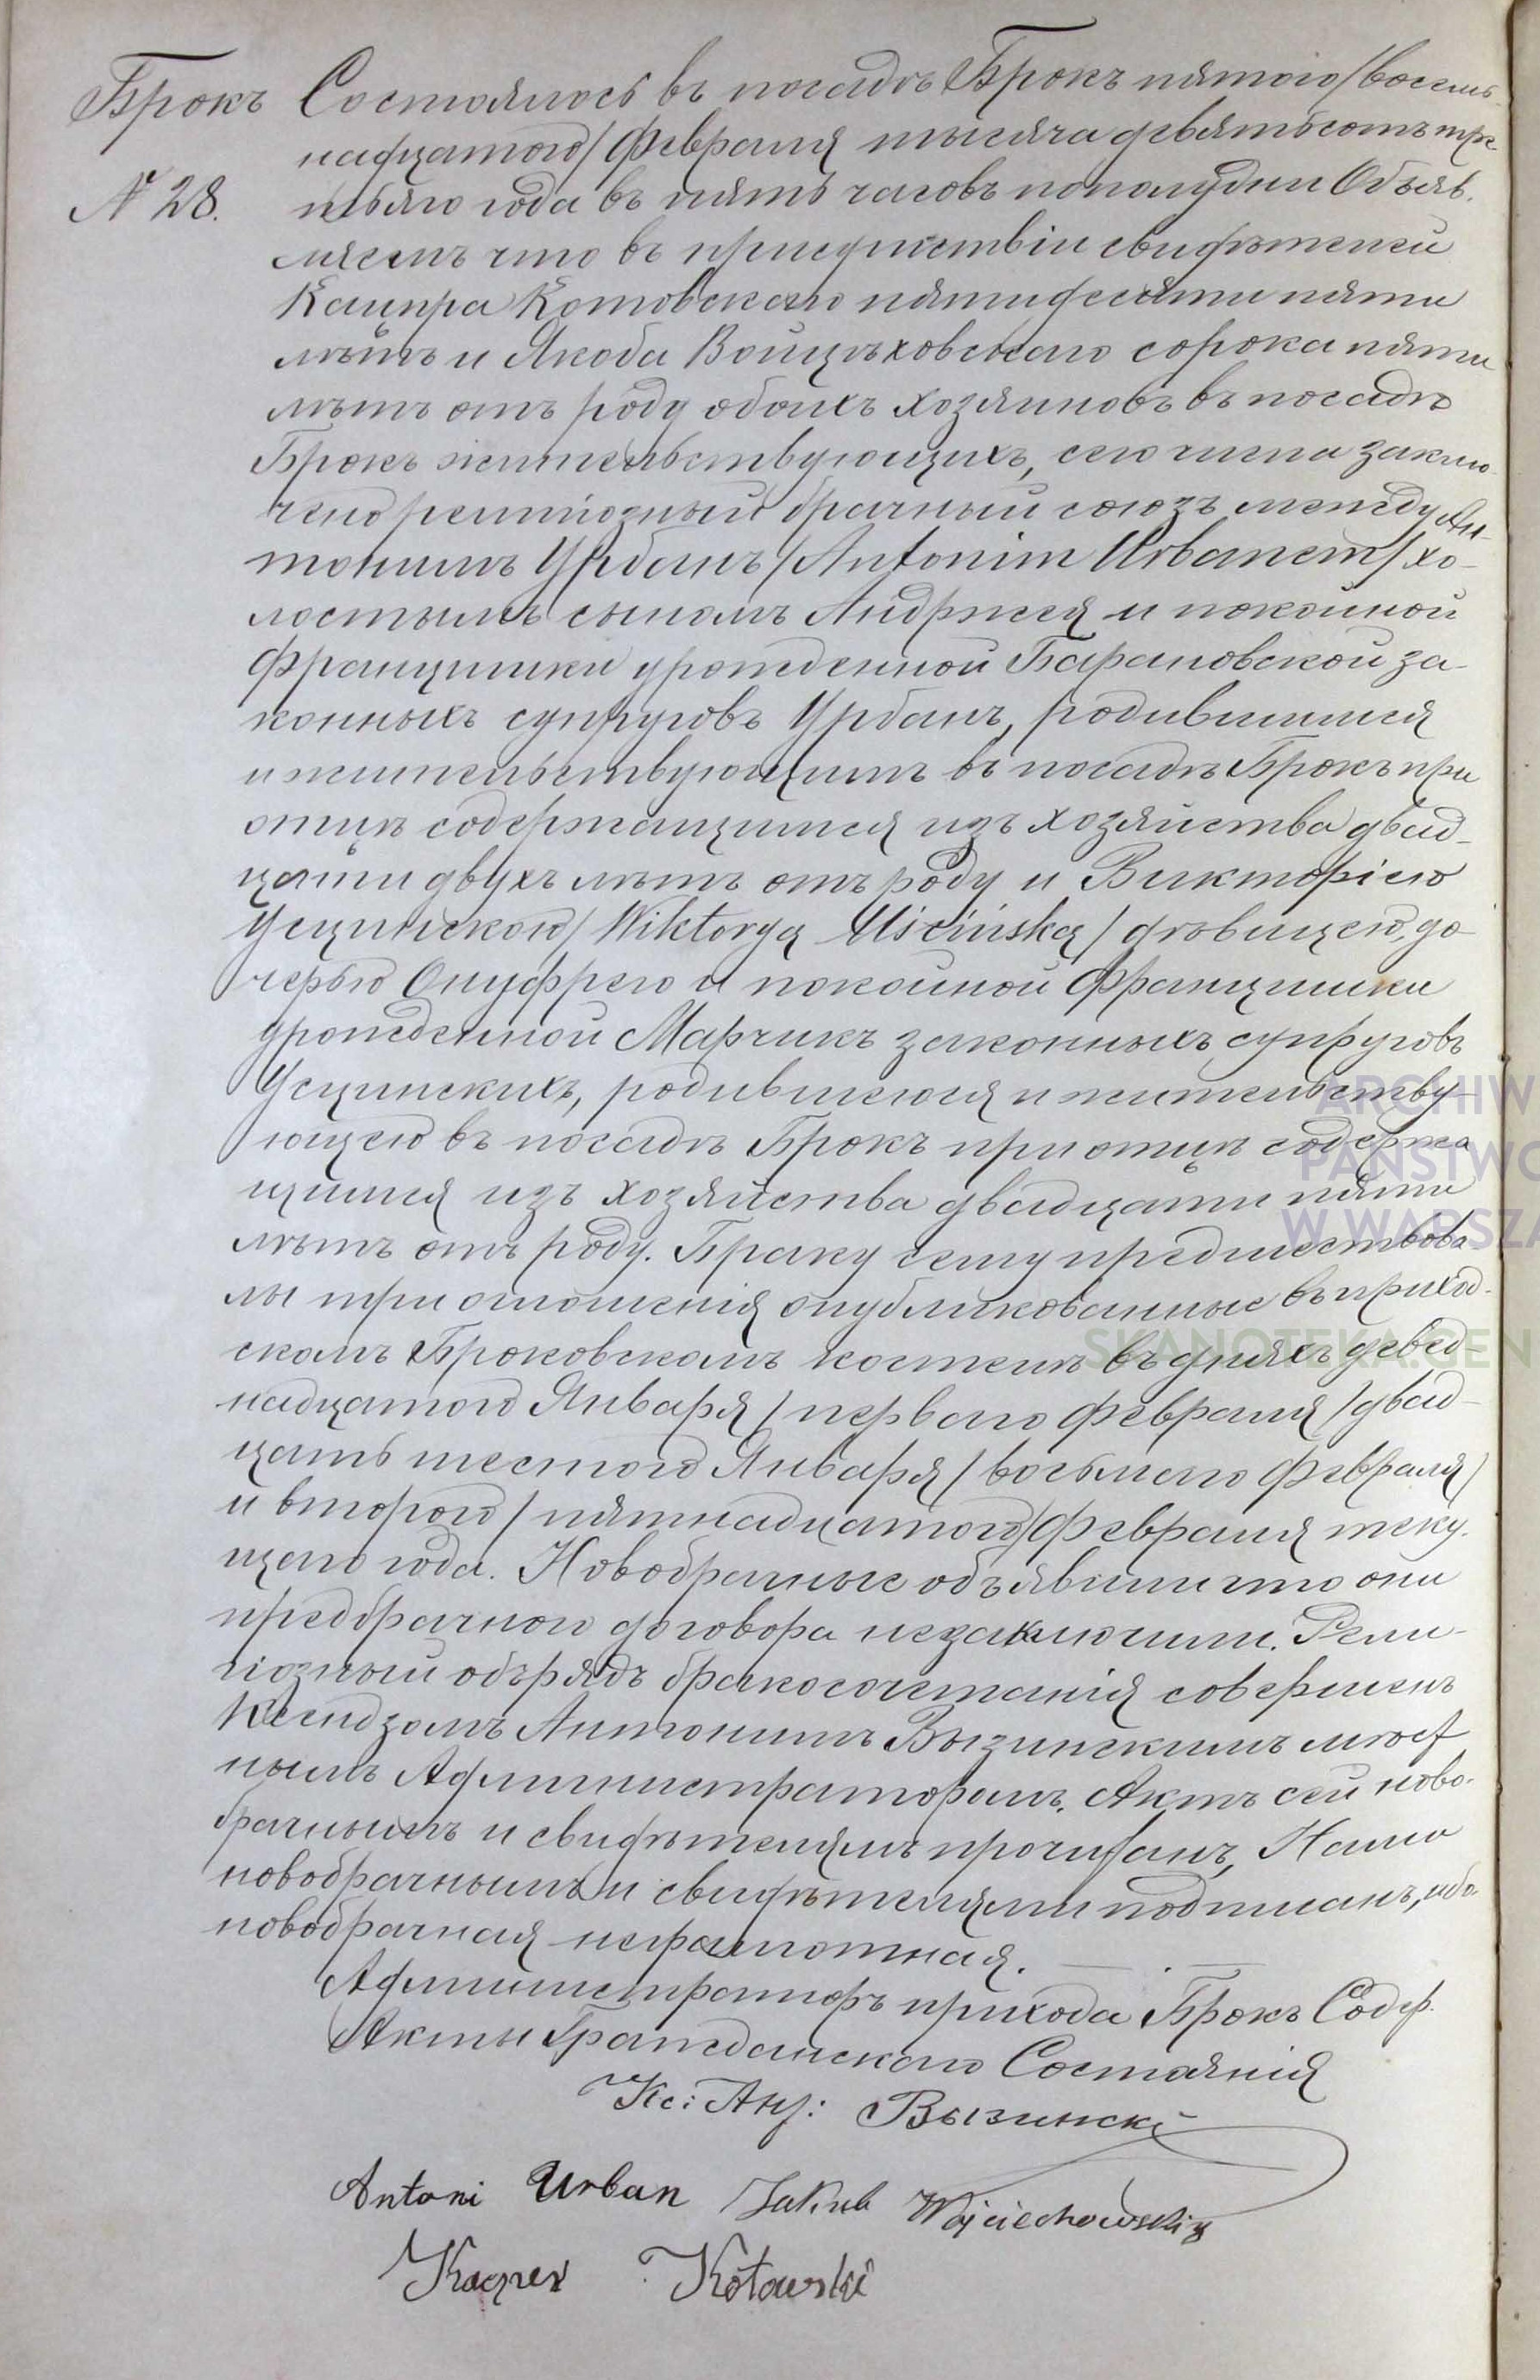 Брокъ
№ 28.
Состоялось въ посадѣ Брокъ пятого /восем-
надцатого/ Февраля тысяча девятьсотъ тре-
тьяго года въ пять часовъ пополудни Объяв-
ляемъ что въ присутствіи свидѣтелей
Кацпра Котовскаго пятидесяти пяти
лѣтъ и Якоба Войцѣховскаго сорока пяти
лѣтъ отъ роду обоихъ хозяиновъ въ посадѣ
Брокъ жительствующихъ, сего числа заклю-
чено религіозный брачный союзъ между Ан-
тонимъ Урбанъ /Antonim Urbanem/ хо-
лостымъ сыномъ Андржея и покойной
Францишки урожденной Барановской за-
конныхъ супруговъ Урбанъ, родившимся
и жительствующимъ въ посадѣ Брокъ при
отцѣ содержащимся изъ хозяйства двад-
цати двухъ лѣтъ отъ роду и Викторіею
Усцинскою /Wiktoryą Uścińską/ дѣвицею, до-
черью Онуфрего и покойной Францишки
урожденной Марчикъ законныхъ супруговъ
Усцинскихъ, родившеюся и жительству-
ющею въ посадѣ Брокъ при отцѣ содержа
щимся изъ хозяйства двадцати пяти
лѣтъ отъ роду. Браку сему предшествова-
лы три оглошенія опубликованные въ приход-
скомъ Броковскомъ костелѣ въ дняхъ девед-
надцатого Января /первого Февраля/ двад-
цать шестого Января /восьмего Февраля/
и второго /пятнадцатого/ Февраля теку-
щаго года. Новобрачные объявили что они
предбрачного договора незаключили. Рели-
гіозный обърядъ бракосочетанія совершенъ
Ксендзомъ Антонимъ Вызинскимъ мѣст
нымъ Администраторомъ. Актъ сей ново-
брачнымъ и свидѣтелямъ прочитанъ, Нами
новобрачнымъ и свидѣтелями подписанъ, ибо
новобрачная неграмотная.
Администраторъ прихода Брокъ Содер.
Акты Гражданскаго Состоянія
Кс: Ант: Вызинскі
Antoni Urban Jakub Wojciechowskiy
Kacper Kotowski
ARCHIW
PAŃSTWO
W WARSZA
SKANOTEKA.GEN